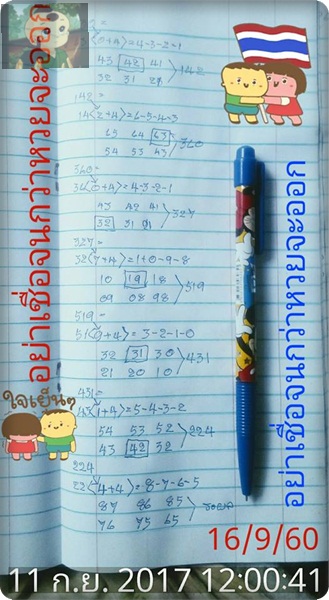 (2+4)=4-3-2-1
43 42 41
32 31 21 > 142
142 =
14(2+4)=6-5-4-3
65 64 63
54 53 43 > 360
360 =
36(0+4)=4-3-2-1
43 42 41
32 31 21 > 327
327 =
32(7+4)=1+0-9-8
10 19 18
09 08 98 > 519
519 =
51(9+4)=3-2-1-0
32 31 30
21 20 10 > 431
431 =
43(1+4)=5-4-3-2
54 53 52
43 42 32 > 224
224
22(4+4)=8-7-6-5
87 86 85
76 75 65 > รอผล
อย่าเชื่อจนกว่าหวยจะออก
อย่าเชื่อจนกว่าหวยจะออก
ใจเย็นๆ
16/9/60
11 ก.ย. 2017 12:00:41